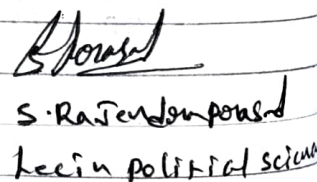 S. Rajendraprasad
Lec in political science